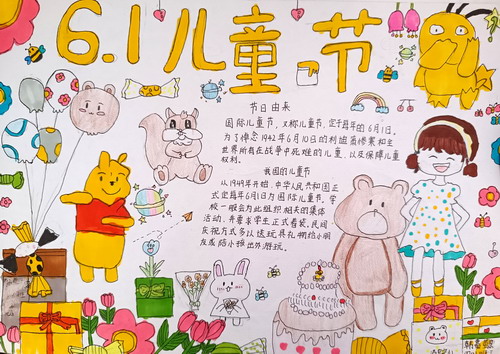 6.1儿童节
节日由来
国际儿童节，又称儿童节，定于每年的6月1日。
为了悼念1942年6月10日的利迪策惨案和全
世界所有在战争中死难的儿童，以及保障儿童
权利。
我国的儿童节
从1949年开始，中华人民共和国正
式定每年6月1日为国际儿童节，学
校一般会为此组织相关的集体
活动，并要求学生正式着装，民间
庆祝方式多以送玩具礼物给小朋
友或陪小孩出外游玩。